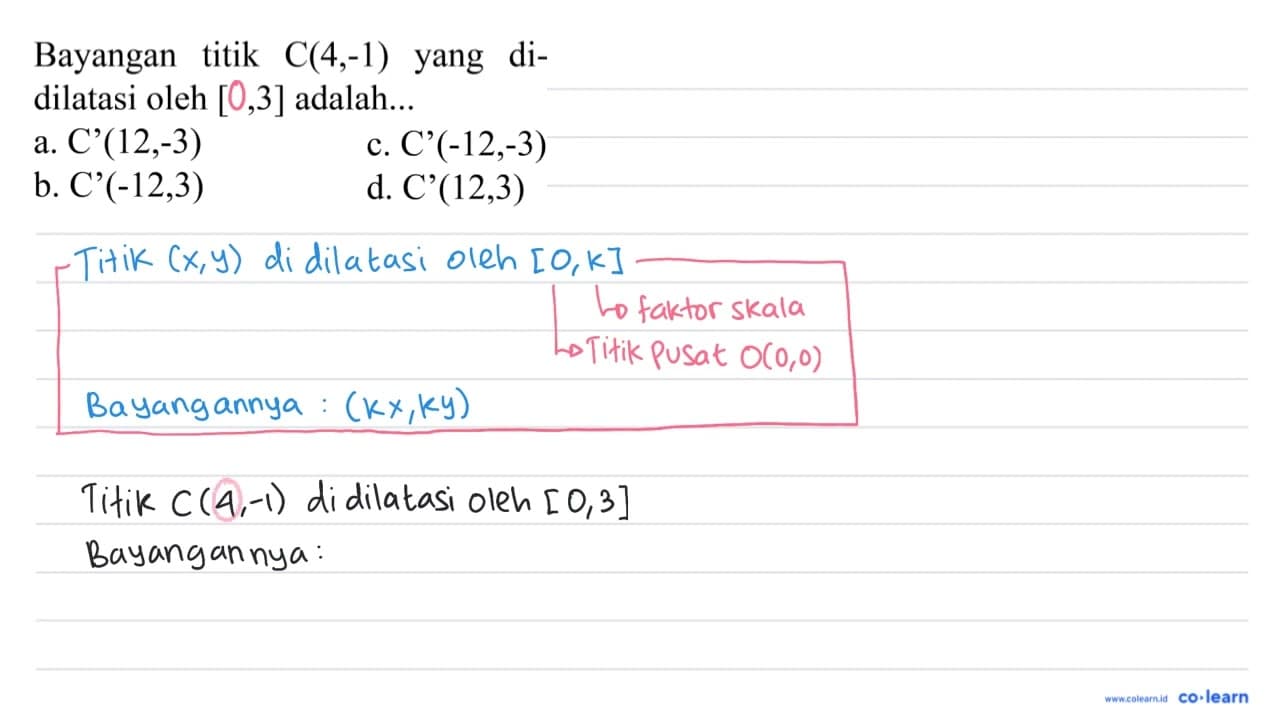 Bayangan titik C(4,-1) yang di-
dilatasi oleh [0,3] adalah...
a. C’(12,-3) c. C’(-12,-3)
b. C’(-12,3) d. C’(12,3)
Titik (x,y) di dilatasi oleh [0,k]
faktor skala
Titik pusat O(0,0)
Bayangannya : (kx,ky)
Titik C(4,-1) di dilatasi oleh [0,3]
Bayangannya :
www.colearn.id co·learn